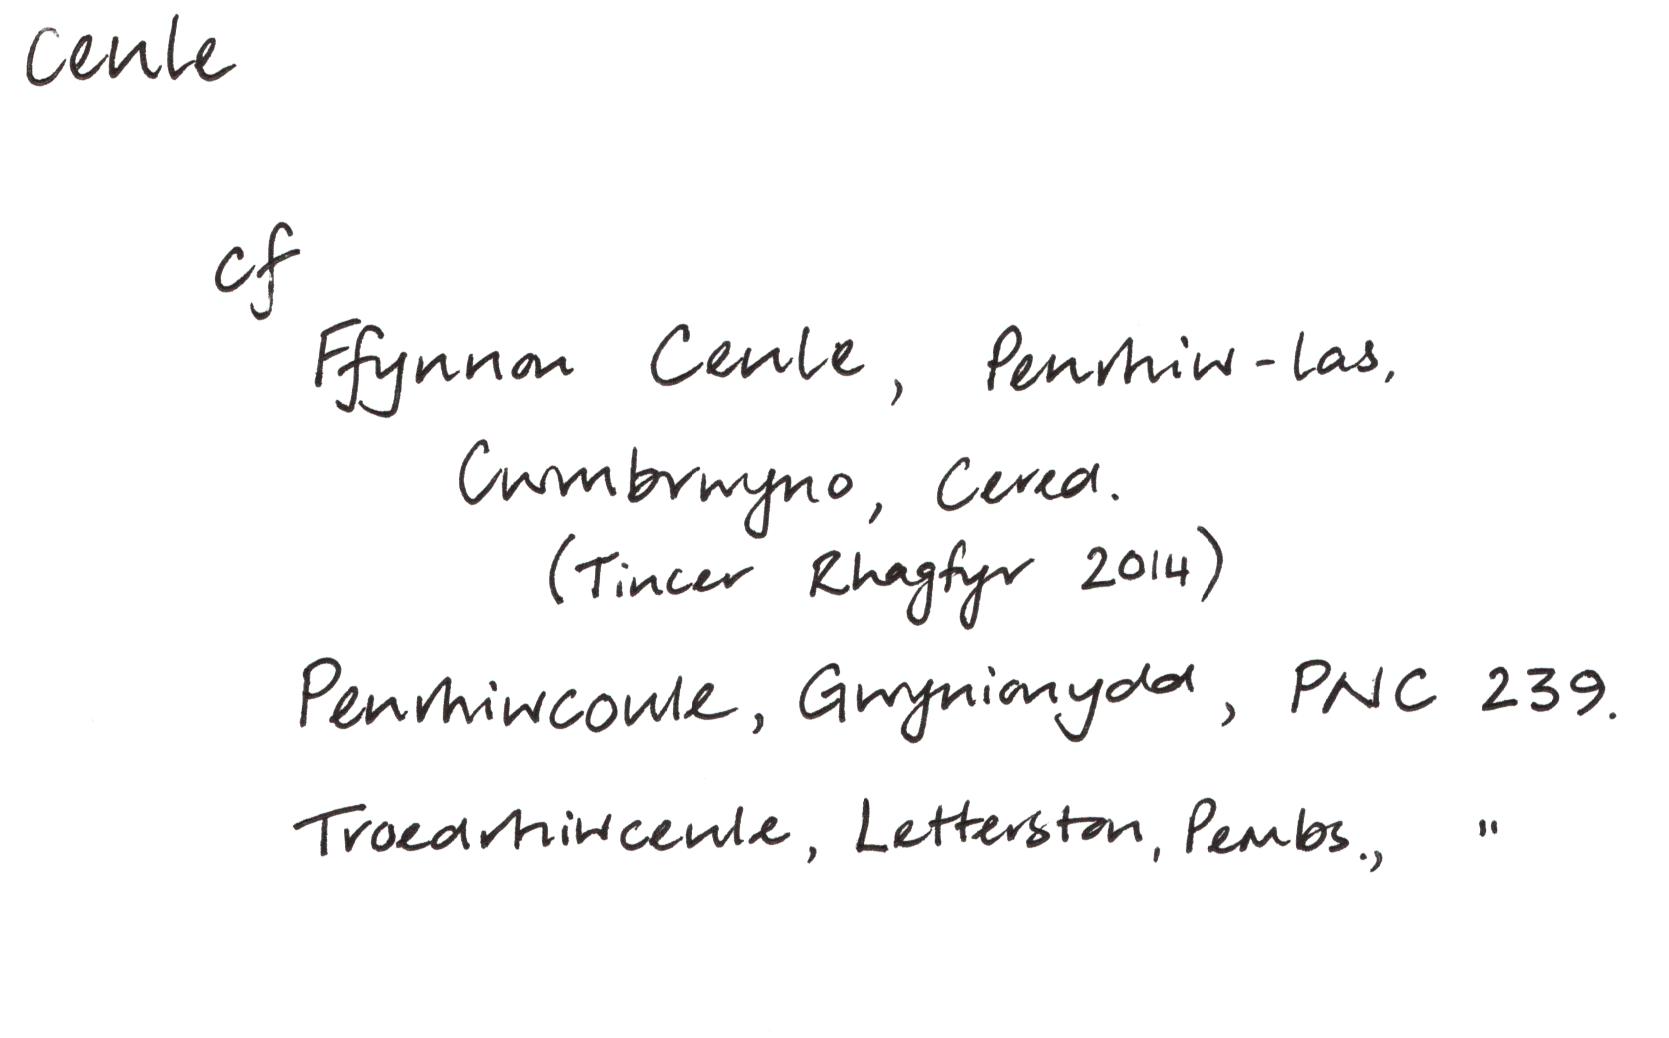 Ceule
cf
Ffynnon Ceule, Penrhiw-las,
Cwmbrwyno, Cered.
(Tincer Rhagfyr 2014)
Penrhiwcoule, Gwynionydd, PNC 239.
Troedrhiwceule, Letterston, Pembs., "